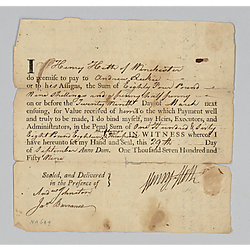 I Henry Hath of Winchester
do promise to pay to Andrew
or to his Assigns, the Sum of Eighty Four Pound
Nine Shillings and of penny half penny
on or before the Twenty Day of March next
ensuing, for Value received of To the which Payment well
and truly to be made, I do bind myself, my Heirs, Executors, and
Administrators, in the Penal Sum of One Hundred & Sixty
Eight Pound Eighteen IN WITNESS whereof I
have hereunto set my Hand and Seal, this 29th Day
of September Anno Dom. One Thousand Seven Hundred and
Fifty Nine
Sealed, and Delivered
in the Presence of